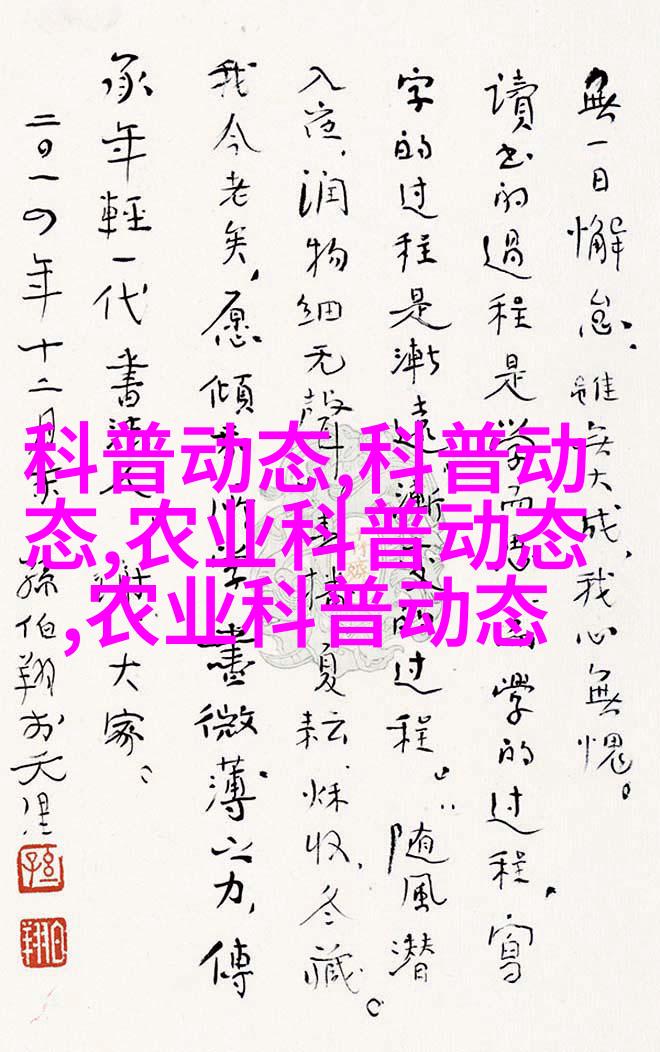 無一日懈怠,雖无大成,我心無愧。
讀书的過程是学而學的过程,寫
字的过程是漸遠漸的过程。随風潛
入夜,润物细无聲,夏耘,秌收,冬藏。
我今老矣,愿傾所学盡微薄之力,傳
承年輕一代書大家。
二〇一四年十二月孫伯翔於天津
科普动态,科普动
态,农业科普动态
,农业科普动态